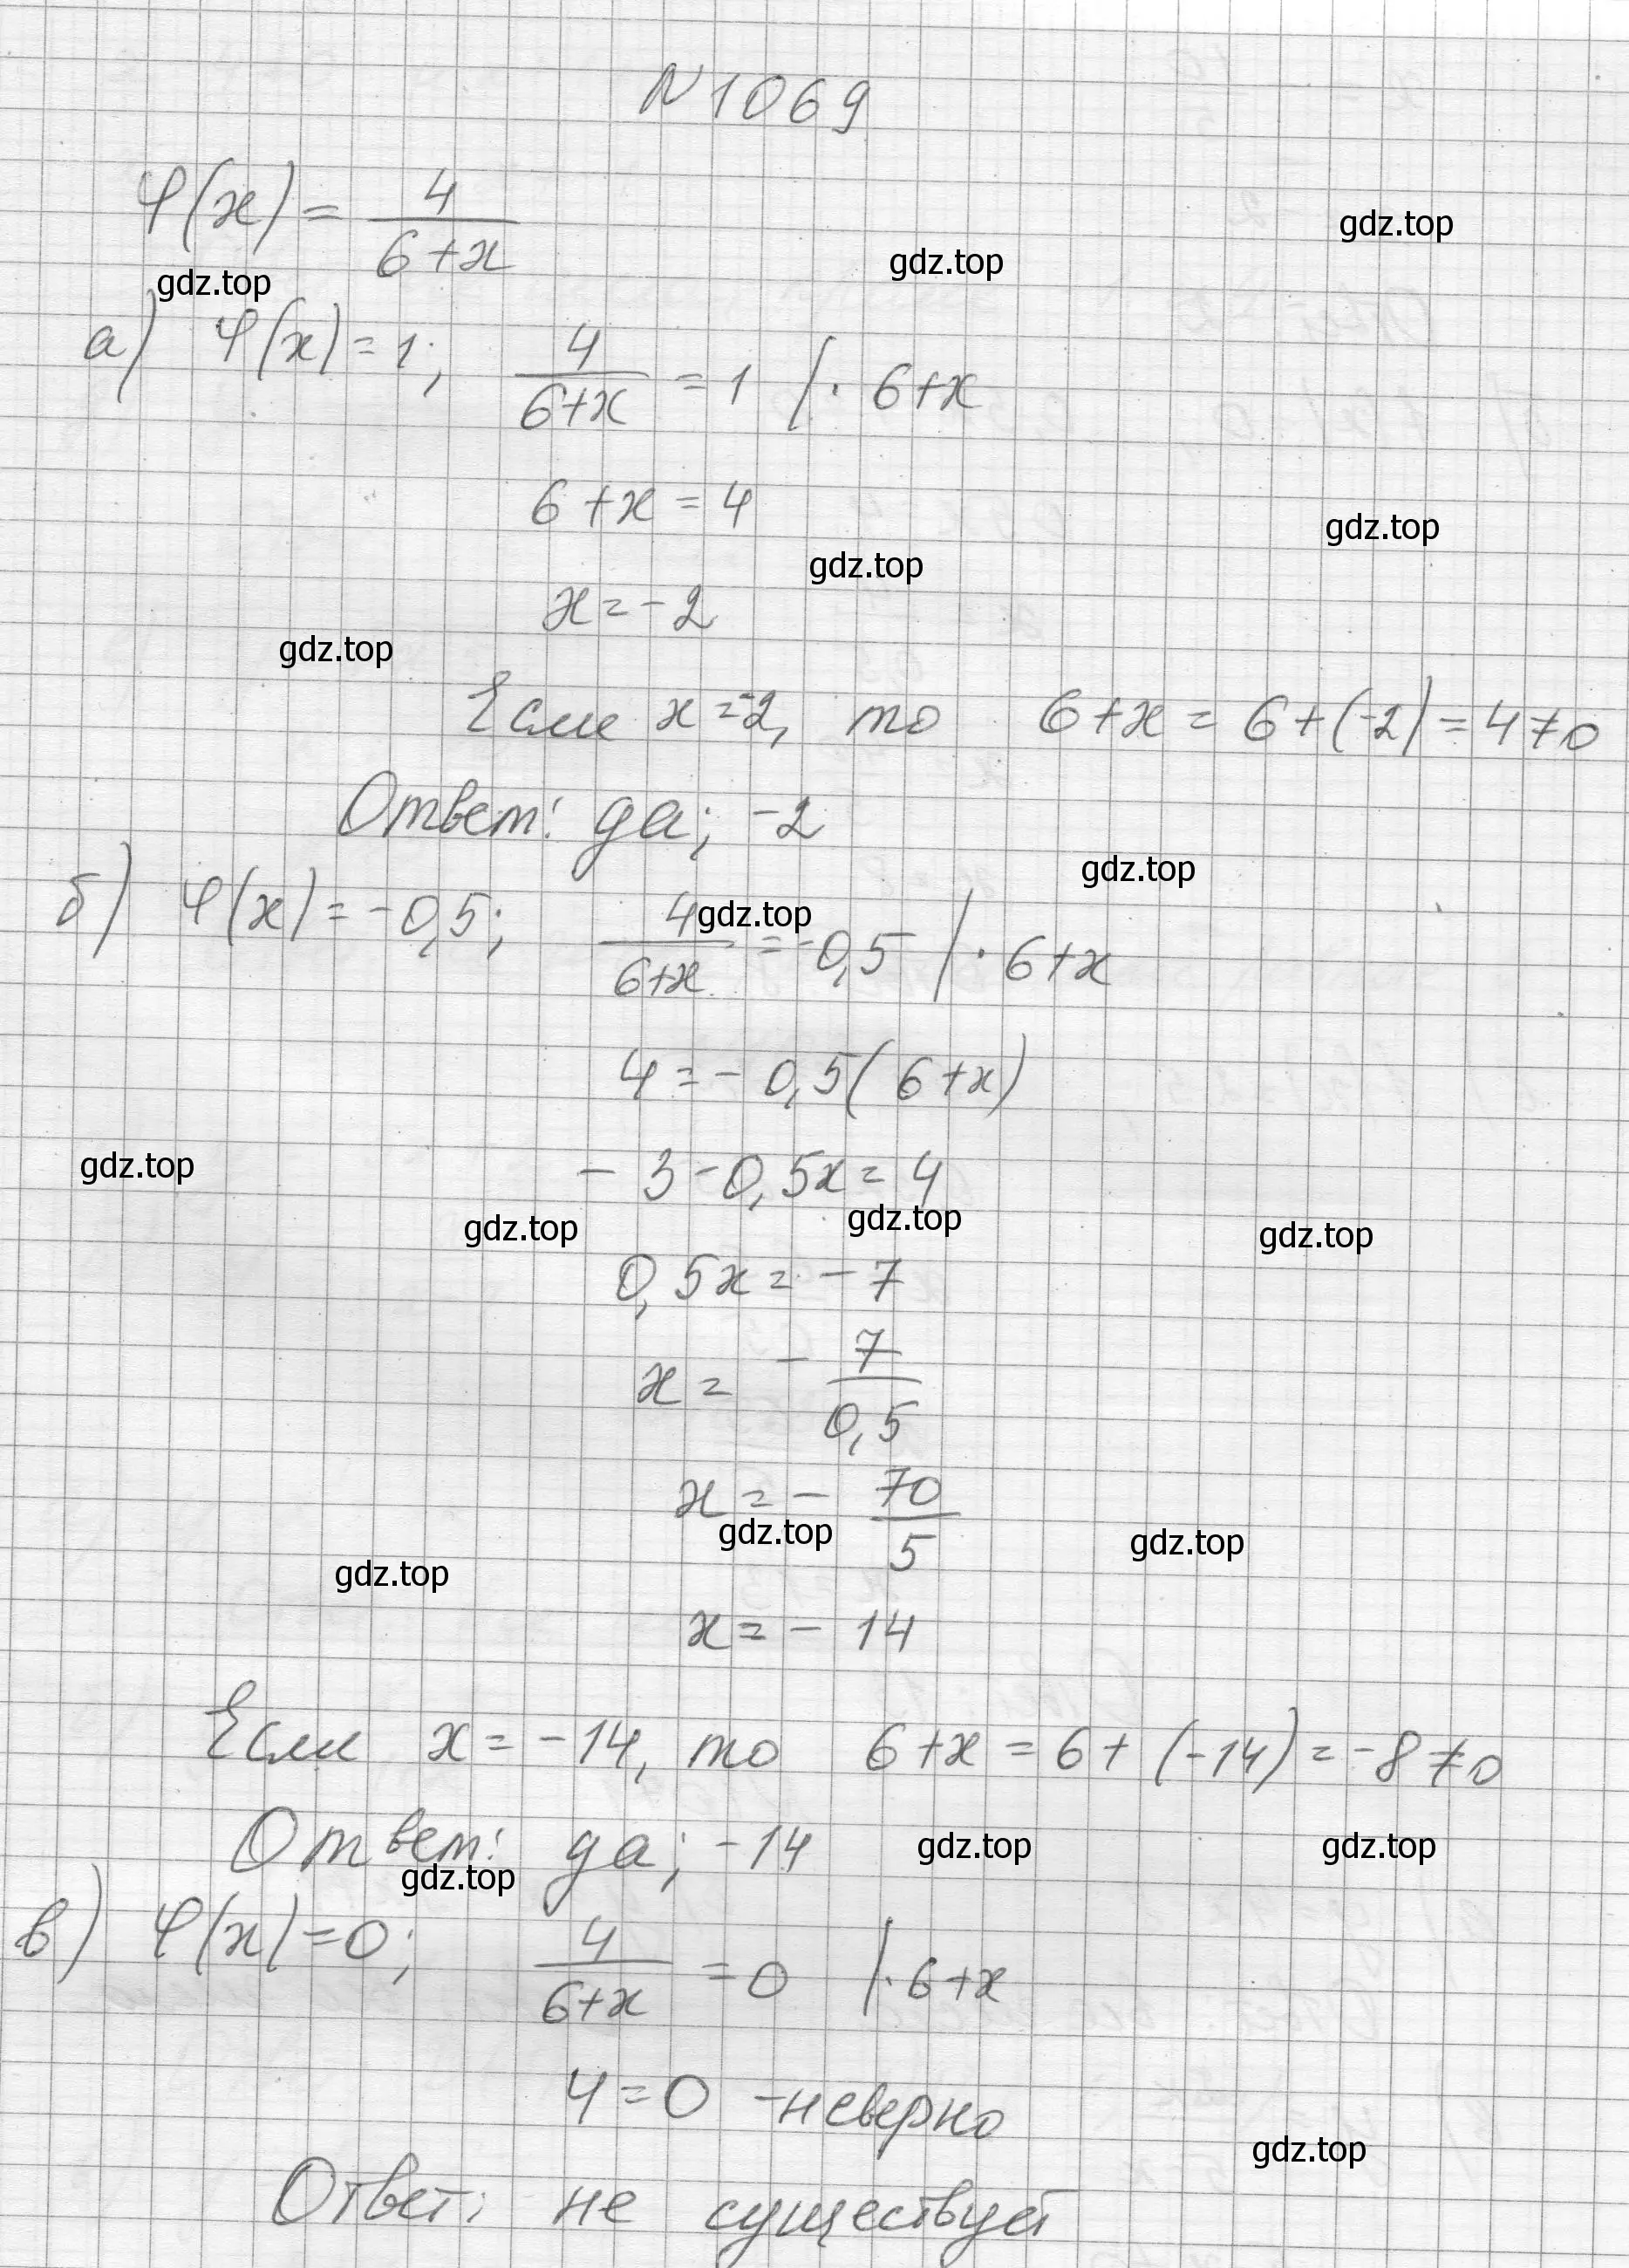 N 1069
φ(x) = 4/(6+x)
gdz.top
gdz.top
gdz.top
а) φ(x) = 1; 4/(6+x) = 1 |· 6+x
6+x = 4
gdz.top
gdz.top
x = -2
gdz.top
Если x = -2, то 6+x = 6+(-2) = 4 ≠ 0
Ответ: да; -2
gdz.top
б) φ(x) = -0,5; 4/(6+x) = -0,5 |· 6+x
gdz.top
4 = -0,5(6+x)
-3-0,5x = 4
gdz.top
gdz.top
gdz.top
gdz.top
0,5x = -7
x = -7/0,5
x = -70/5
gdz.top
gdz.top
gdz.top
x = -14
Если x = -14, то 6+x = 6+(-14) = -8 ≠ 0
Ответ: да; -14
gdz.top
gdz.top
gdz.top
в) φ(x) = 0; 4/(6+x) = 0 |· 6+x
4 = 0 - неверно
gdz.top
Ответ: не существует